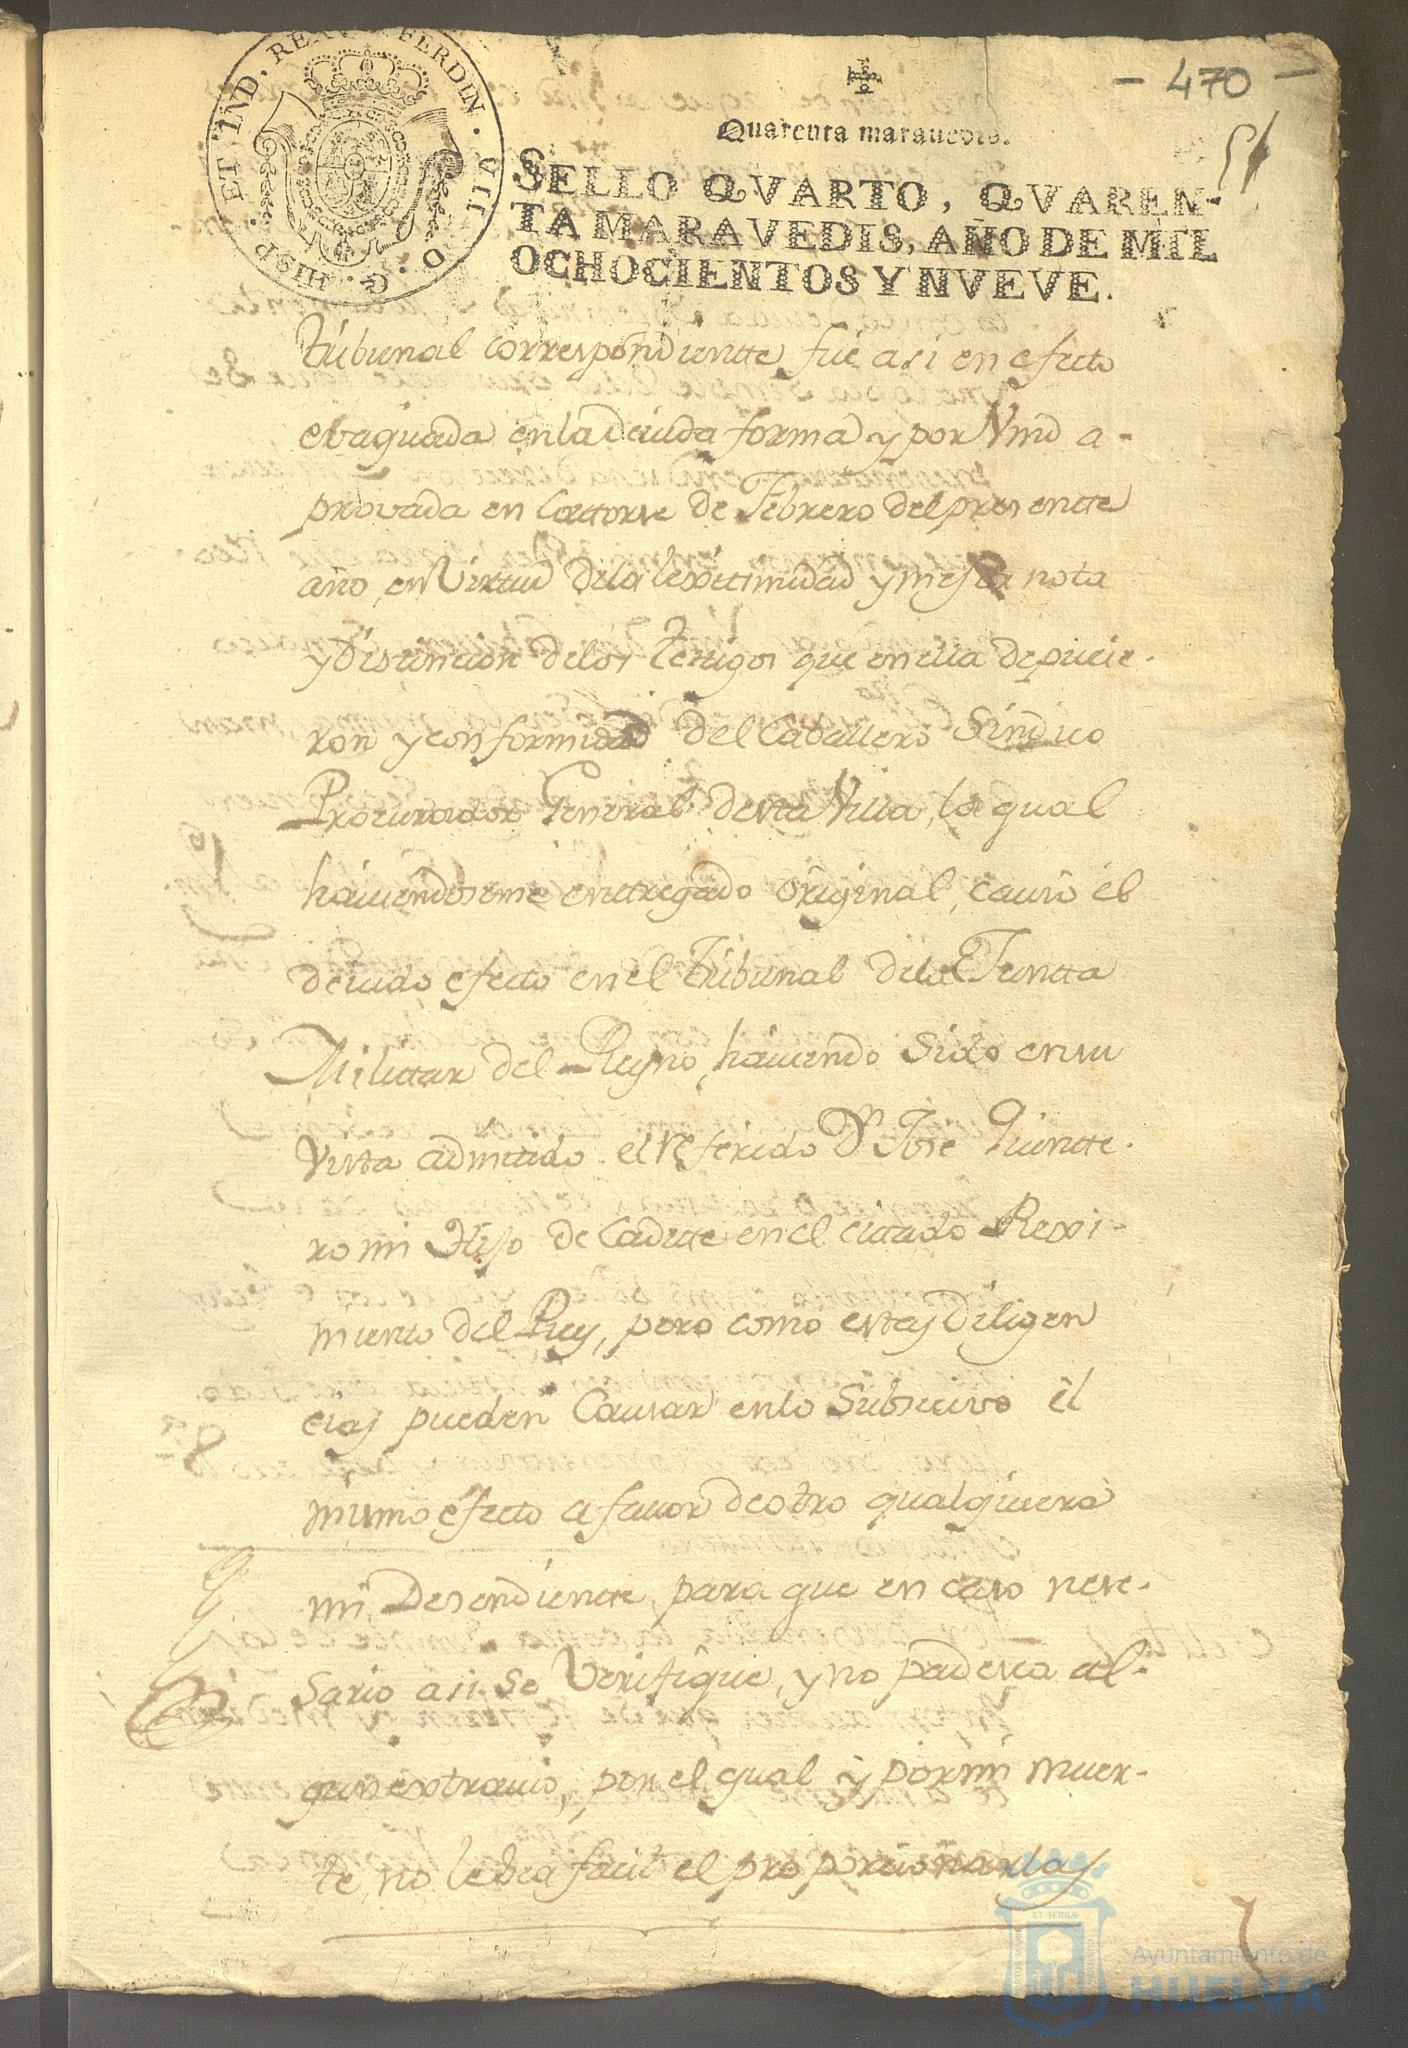 - 470 -
51
FERDIN. VII. D. G. HISP. ET IND. REX
Quarenta maravedis.
SELLO QVARTO, QVAREN-
TA MARAVEDIS, AÑO DE MIL
OCHOCIENTOS Y NVEVE.
tribunal correspondientte fue asi en efecto
ebaquada en la devida forma y por Vmd a-
provada en Cattorse de Febrero del presentte
año, en Virtud de la lexitimidad y mejor nota
y Distincion de los Testigos que en ella depucie-
ron y conformidad del Caballero Sindico
Procurador General desta Villa, la qual
haviendoseme enttregado original, causó el
devido efecto en el Tribunal de la Juntta
Milittar del Reyno, haviendo sido en su
Vista admitido el referido Dn Jose Quintte-
ro mi Hijo de Cadette en el cittado Rexi-
miento del Rey, pero como estas Diligen
cias pueden Causar en lo Subsecivo el
mismo efecto a favor de otro qualquiera
mi Desendientte, para que en caso nese-
sario asi se Verifique, y no padesca al-
gun extravio, por el qual y por mi muer-
te no le sea facil el proporcionarlas
ET TERRAE
Ayuntamiento de
HUELVA